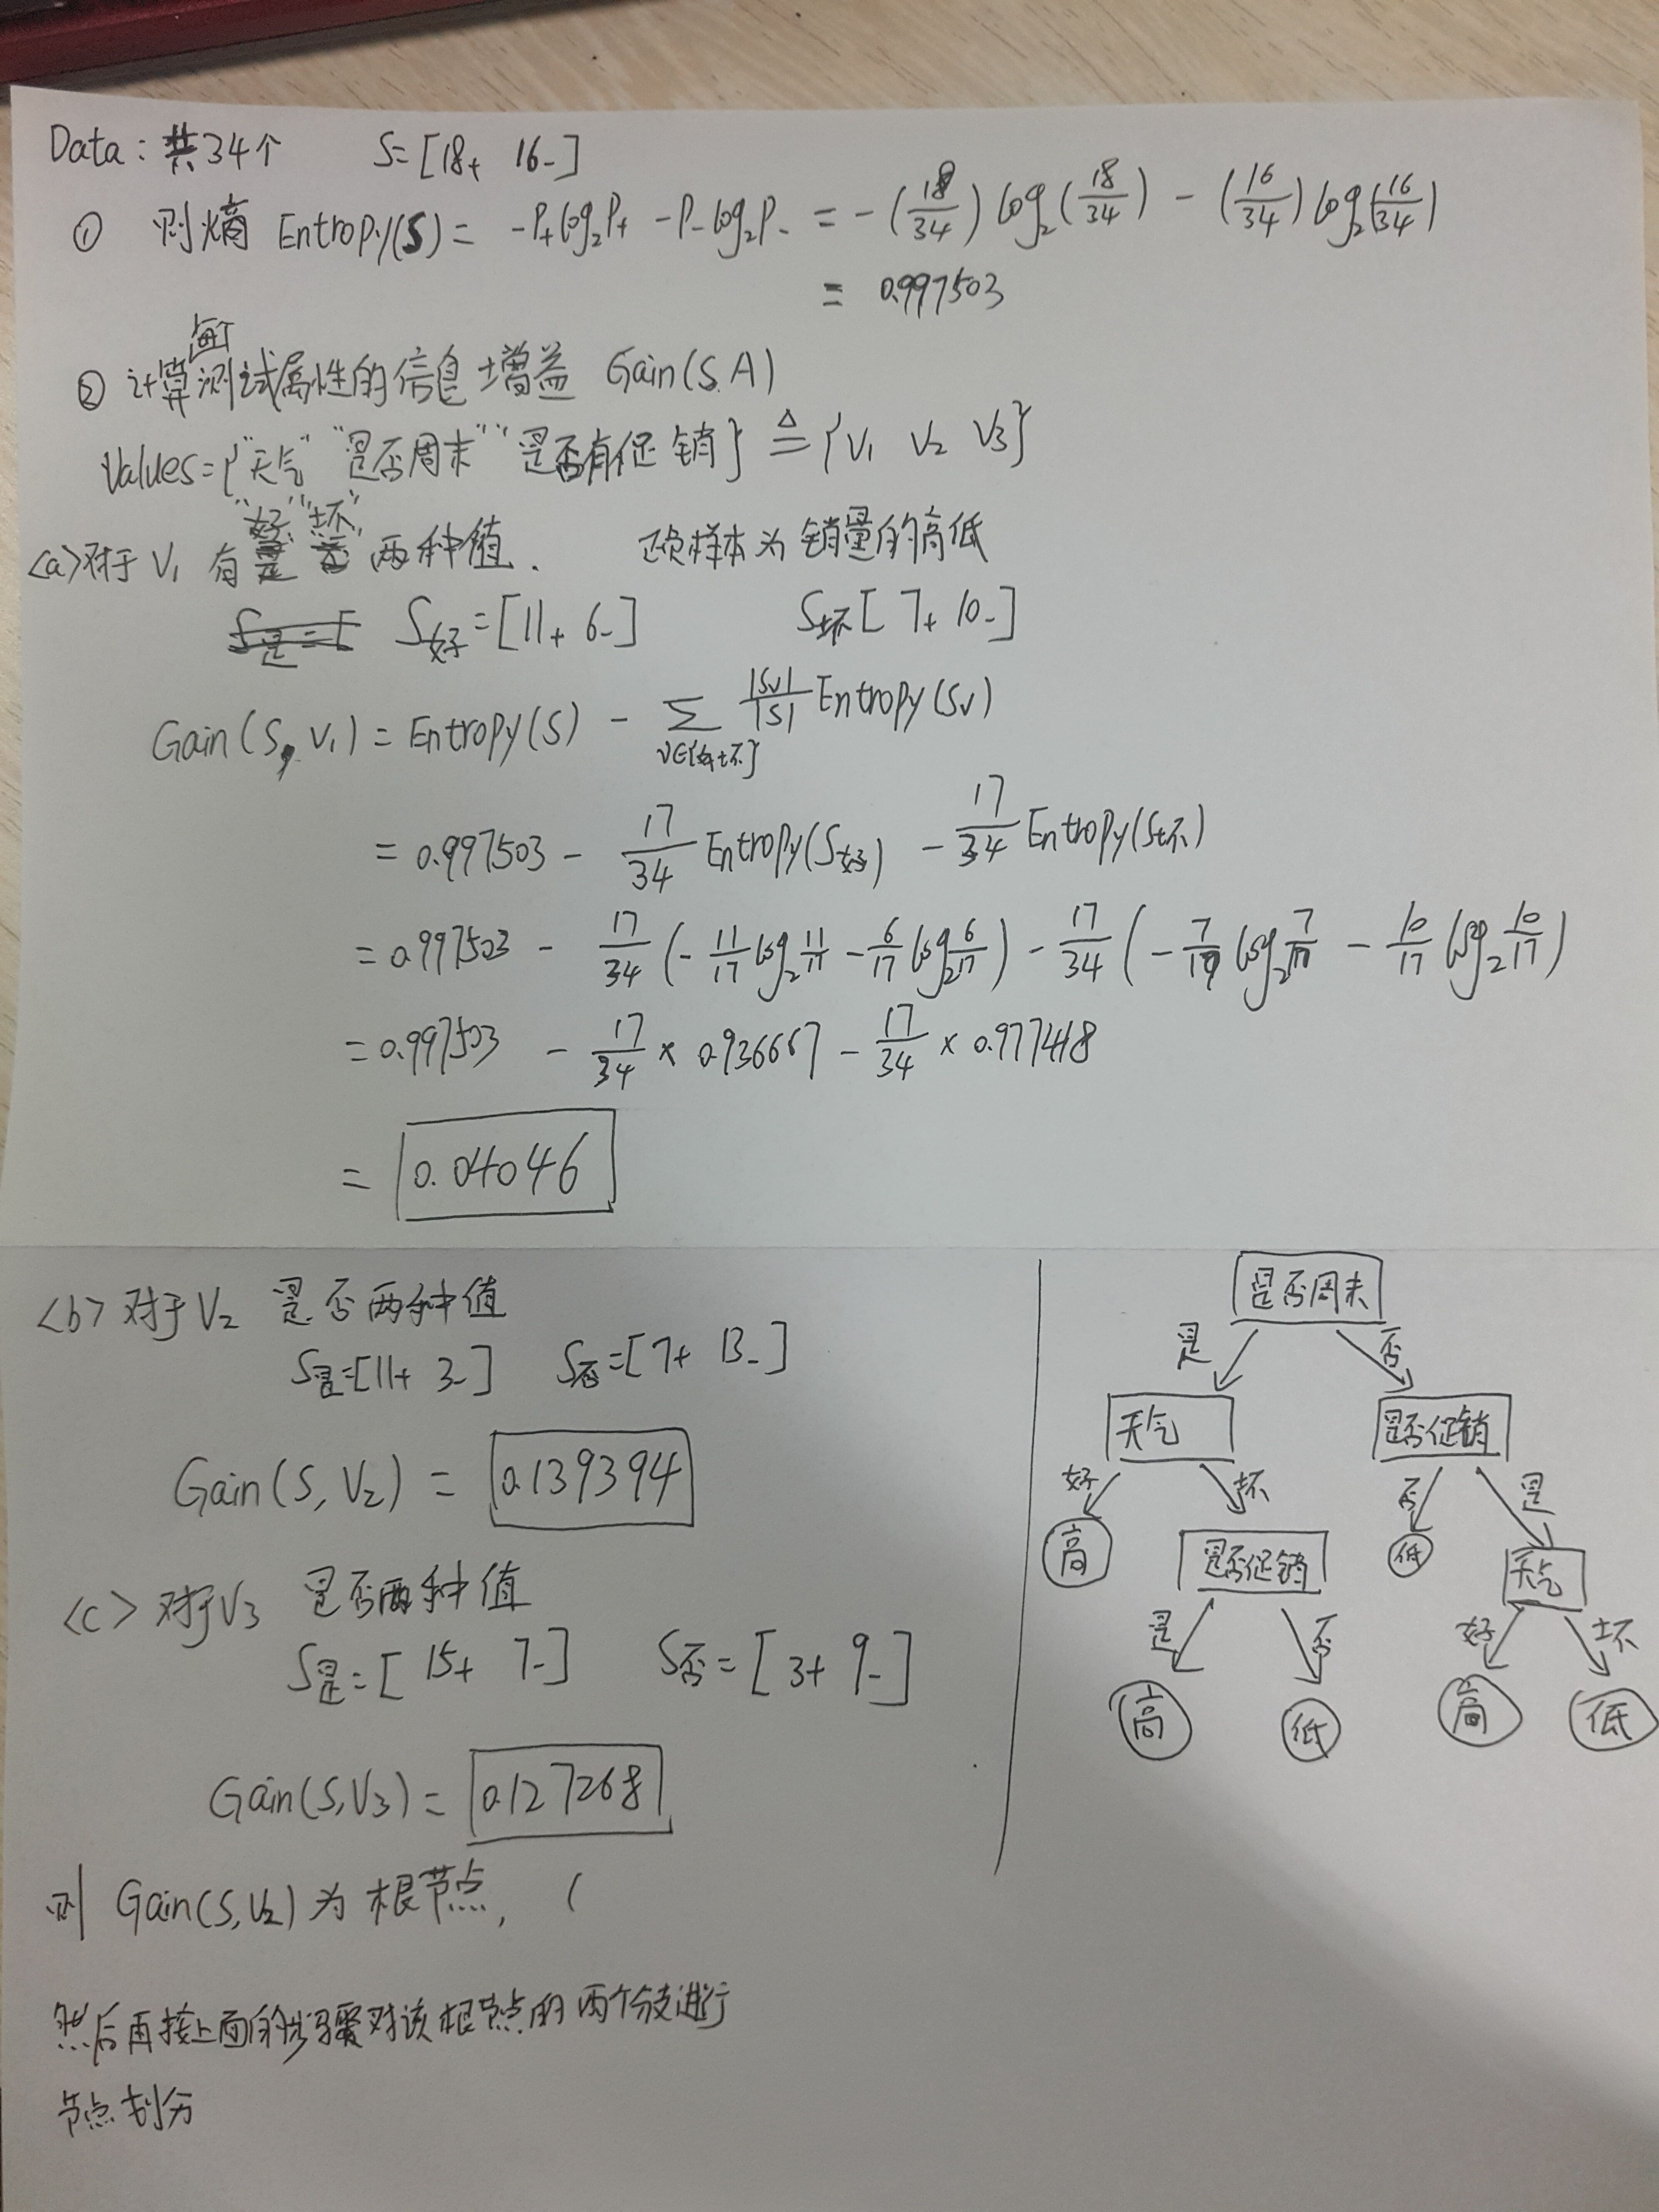 Data：共34个 S=[18+ 16-]
① 则熵 Entropy(S) = -P+log₂P+ -P-log₂P- = -(18/34)log₂(18/34) - (16/34)log₂(16/34)
= 0.997503
② 计算每个测试属性的信息增益 Gain(S.A)
Values={"天气" "是否周末" "是否有促销} ≜ {V₁ V₂ V₃}
<a>对于V₁ 有"好""坏"两种值. 正负样本为销量的高低
S好=[11+ 6-] S坏[7+ 10-]
Gain(S, V₁) = Entropy(S) - ∑ v∈{好 坏} |Sv|/|S| Entropy(Sv)
= 0.997503 - 17/34 Entropy(S好) - 17/34 Entropy(S坏)
= 0.997503 - 17/34 (-11/17 log₂ 11/17 - 6/17 log₂ 6/17) - 17/34 (-7/17 log₂ 7/17 - 10/17 log₂ 10/17)
= 0.997503 - 17/34 × 0.936667 - 17/34 × 0.977418
= 0.04046
<b>对于V₂ 是否两种值
S是=[11+ 3-] S否=[7+ 13-]
Gain(S, V₂) = 0.139394
<c>对于V₃ 是否两种值
S是=[15+ 7-] S否=[3+ 9-]
Gain(S,V₃) = 0.127268
则 Gain(S,V₂)为根节点, (
然后再按上面的步骤对该根节点的两个分支进行
节点划分
是否周末
是 否
天气 是否促销
好 坏 否 是
高 是否促销 低 天气
是 否 好 坏
高 低 高 低